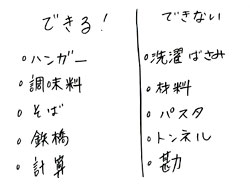 できる!
○ハンガー
○調味料
○そば
○鉄橋
○計算
できない
○洗濯ばさみ
○材料
○パスタ
○トンネル
○勘